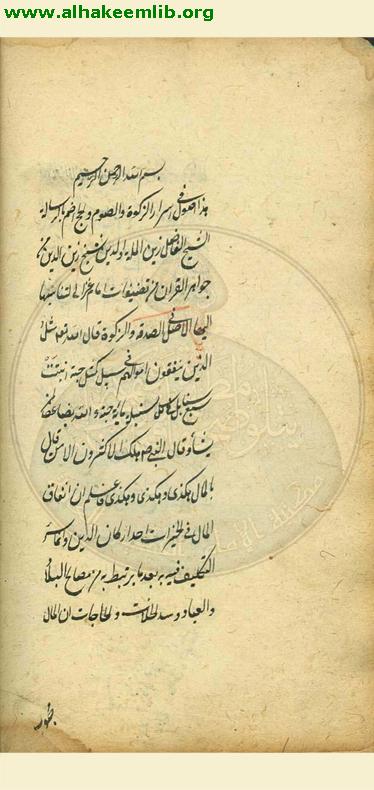 www.alhakeemlib.org
بسم الله الرحمن الرحيم
هذا فصول في اسرار الزكوة والصوم والحج اضم الرسالة
الشيخ الفاضل زين الملة والدين الشيخ زين الدين من
جواهر القرآن من تصنيفات امام غزالي لتناسبها
اليها الاصل في الصدقة والزكوة قال الله تعالى مثل
الذين ينفقون اموالهم في سبيل الله كمثل حبة انبتت
سبع سنابل في كل سنبلة مائة حبة والله يضاعف لمن
يشاء وقال النبي صلعم هلك الاكثرون الا من قال
بالمال هكذا وهكذا وهكذا فاعلم ان انفاق
المال في الخيرات احد اركان الدين
التكليف فيه بعد ما يرتبط به من مصالح البلاد
والعباد وسد الخلات والحاجات ان المال